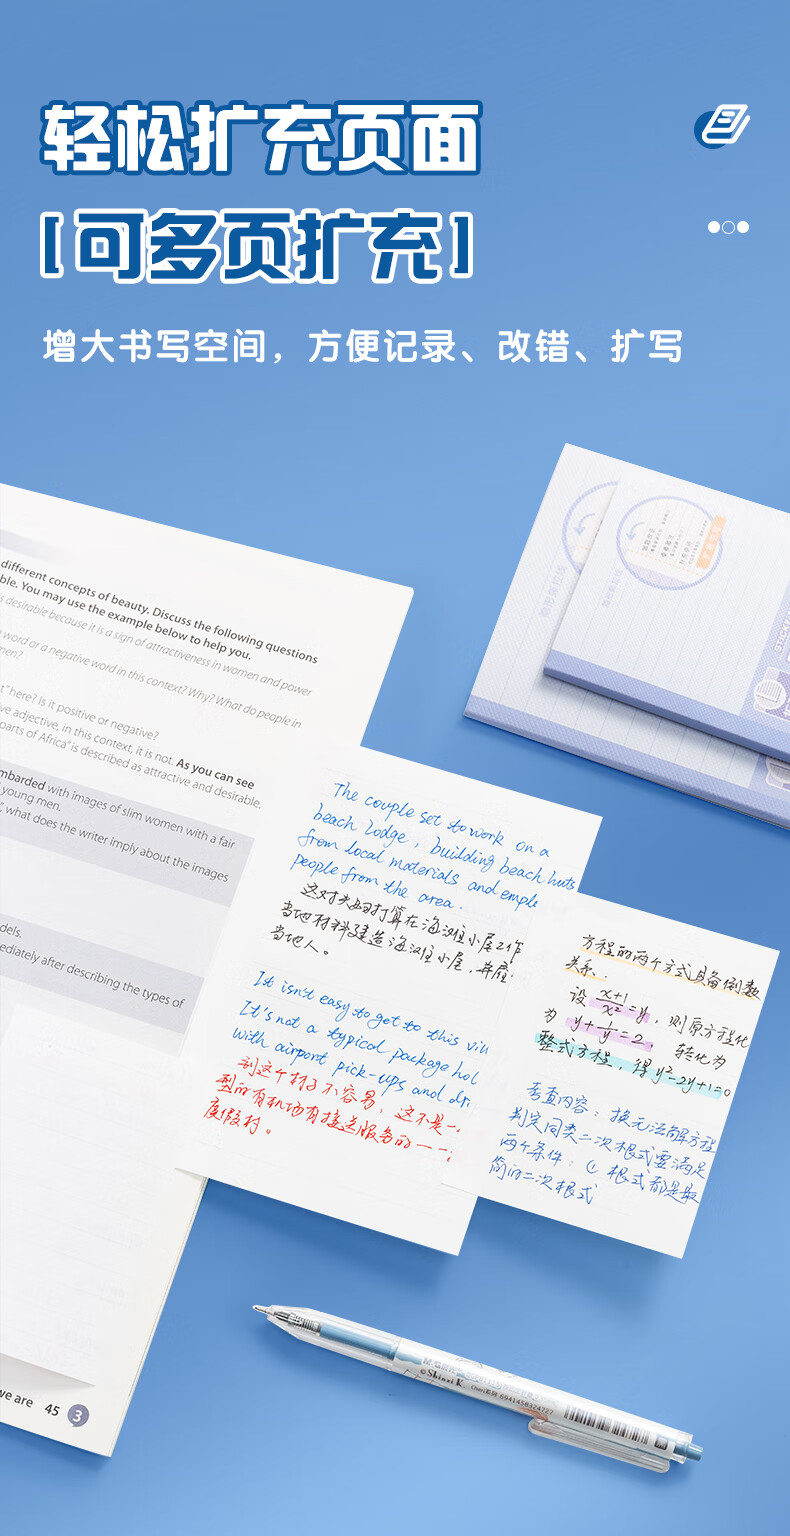 轻松扩充页面
[可多页扩充]
增大书写空间，方便记录、改错、扩写
different concepts of beauty. Discuss the following questions
ble. You may use the example below to help you.
s desirable because it is a sign of attractiveness in women and power
word or a negative word in this context? Why? What do people in
men?
t" here? Is it positive or negative?
ve adjective, in this context, it is not. As you can see
parts of Africa" is described as attractive and desirable.
mbarded with images of slim women with a fair
young men.
", what does the writer imply about the images
dels.
ediately after describing the types of
we are 45 3
The couple set to work on a
beach lodge, building beach huts
from local materials and emple
people from the area.
这对夫妇打算在海滩住小屋工作
当地材料建造海滩住小屋，并雇
当地人。
It isn't easy to get to this vill
It's not a typical package hol
with airport pick-ups and dri
到这个村子不容易，这不是一
型的有机场有接送服务的一一；
度假村。
方程的两个方式具备倒数
关系.
设 x+1/x²=y，则原方程化
为 y+1/y=2， 转化为
整式方程，得y²-2y+1=0
考查内容：换元法解方程
判定同类二次根式要满足
两个条件：① 根式都是最
简的二次根式
© Shinzi K.
6941458924727